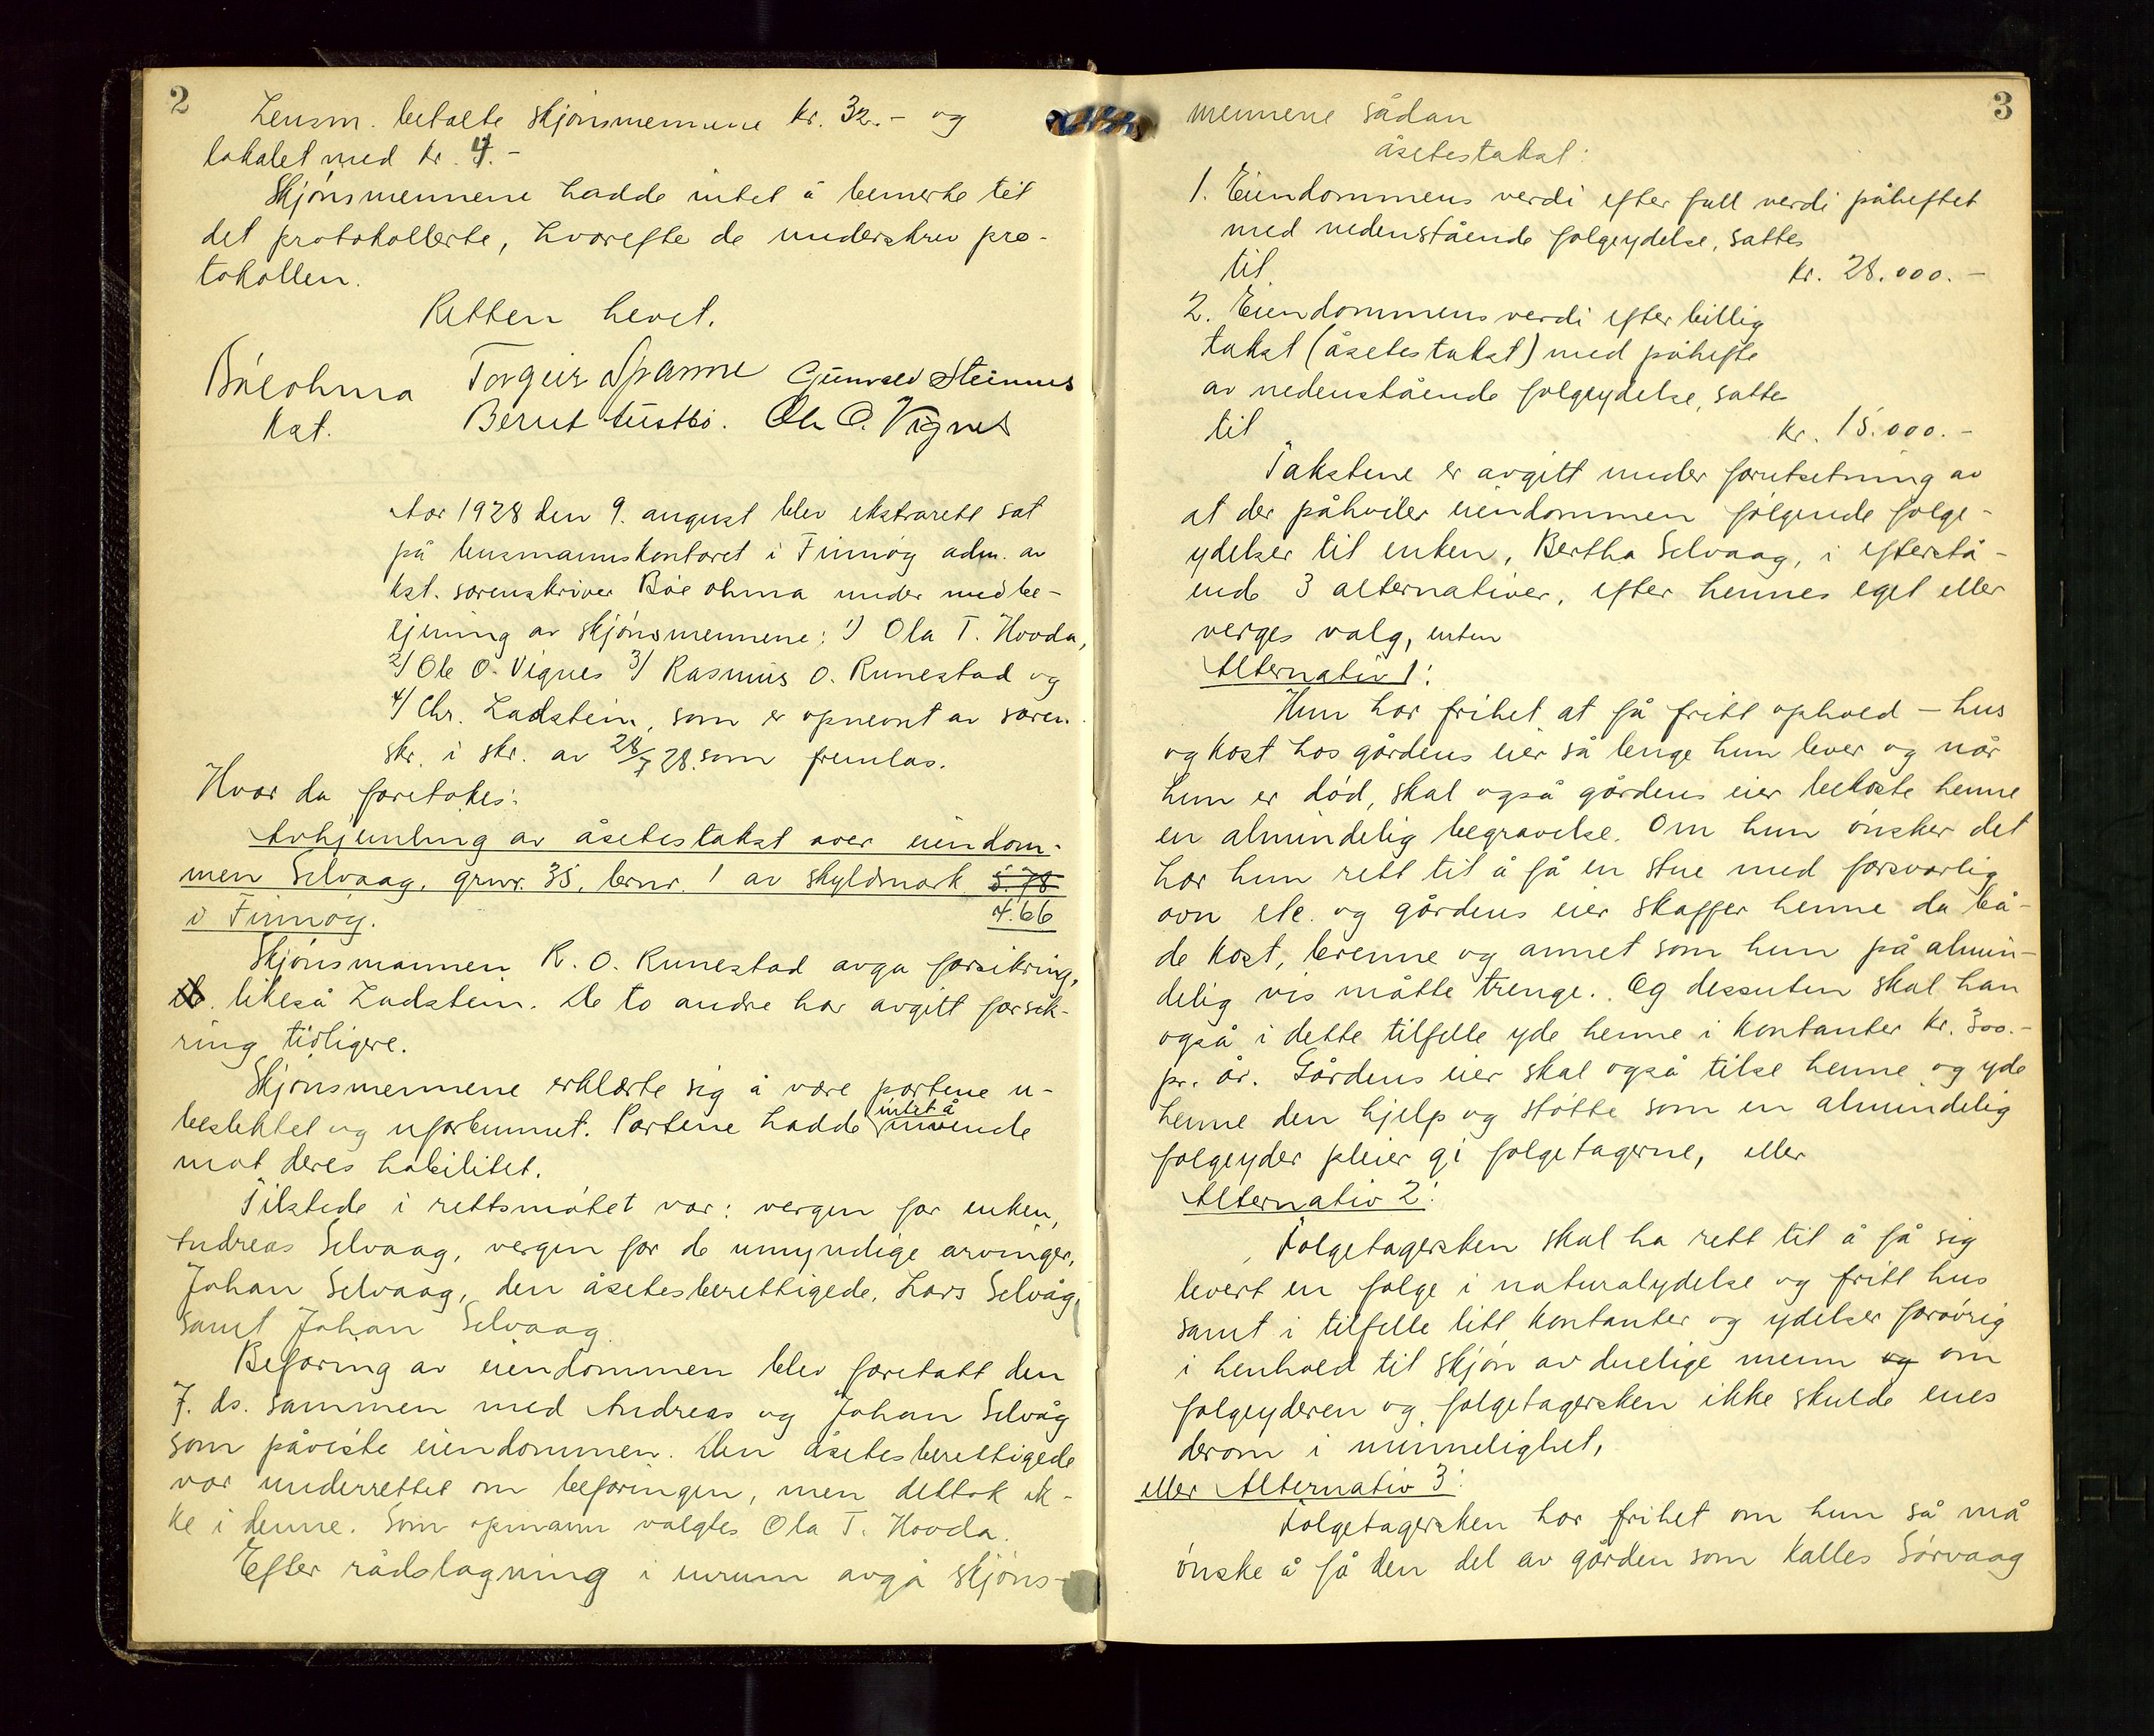 2
Lensm. betalte skjønsmennene kr. 32.- og
lokalet med kr. 4.-
Skjønsmennene hadde intet å bemerke til
det protokollerte, hvorefte de underskrev pro-
tokollen.
Retten hevet.
Bóe ohma Torgeir Spanne Gunvald Steinnes
kst. Bernt Austbø. Ole O. Vignes
Aar 1928 den 9. august blev ekstrarett sat
på lensmannskontoret i Finnøy adm. av
kst. sorenskriver Bóe ohma under medbe-
tjening av skjønsmennene: 1) Ola T. Hovda,
2/ Ole O. Vignes 3/ Rasmus O. Runestad og
4/ Chr. Ladstein, som er opnevnt av soren
skr. i skr. av 28/7 28. som fremlas.
Hvor da foretokes:
Avhjemling av åsetestakst over eiendom-
men Selvaag, grnr. 35, brnr. 1 av skyldmark 5.78
i Finnøy. 4.66
Skjønsmannen R. O. Runestad avga forsikring,
likeså Ladstein. De to andre har avgitt forsik-
ring tidligere.
Skjønsmennene erklærte sig å være partene u-
beslektet og uforbunnet. Partene hadde intet å innvende
mot deres habilitet.
Tilstede i rettsmøtet var: vergen for enken,
Andreas Selvaag, vergen for de umyndige arvinger,
Johan Selvaag, den åsetesberettigede, Lars Selvåg,
samt Johan Selvaag.
Befaring av eiendommen blev foretatt den
7. ds. sammen med Andreas og Johan Selvåg
som påviste eiendommen. Den åsetesberettigede
var underrettet om befaringen, men deltok ik-
ke i denne. Som opmann valgtes Ola T. Hovda.
Efter rådslagning i enrum avga skjøns-
3
mennene sådan
åsetestakst:
1. Eiendommens verdi efter full verdi påheftet
med nedenstående folgeydelse, sattes
til kr. 28.000.-
2. Eiendommens verdi efter billig
takst (åsetestakst) med påhefte
av nedenstående folgeydelse, satte
til kr. 15.000.-
Takstene er avgitt under forutsetning av
at der påhviler eiendommen følgende folge-
ydelser til enken, Bertha Selvaag, i eftersta-
ende 3 alternativer, efter hennes eget eller
verges valg, enten
Alternativ 1:
Hun har frihet at få fritt ophold - hus
og kost hos gårdens eier så lenge hun lever og når
hun er død, skal også gårdens eier bekoste henne
en almindelig begravelse. Om hun ønsker det
har hun rett til å få en stue med forsvarlig
ovn etc. og gårdens eier skaffer henne da bå-
de kost, brenne og annet som hun på almin-
delig vis måtte trenge. Og dessuten skal han
også i dette tilfelle yde henne i kontanter kr. 300.-
pr. år. Gårdens eier skal også tilse henne og yde
henne den hjelp og støtte som en almindelig
folgeyder pleier gi folgetagerne, eller
Alternativ 2:
Folgetagersken skal ha rett til å få sig
levert en folge i naturalydelse og fritt hus
samt i tilfelle litt kontanter og ydelser forøvrig
i henhold til skjøn av duelige menn og om
folgeyderen og folgetagersken ikke skulde enes
derom i minnelighet,
eller Alternativ 3:
Folgetagersken har frihet om hun så må
ønske å få den del av gården som kalles Sørvaag